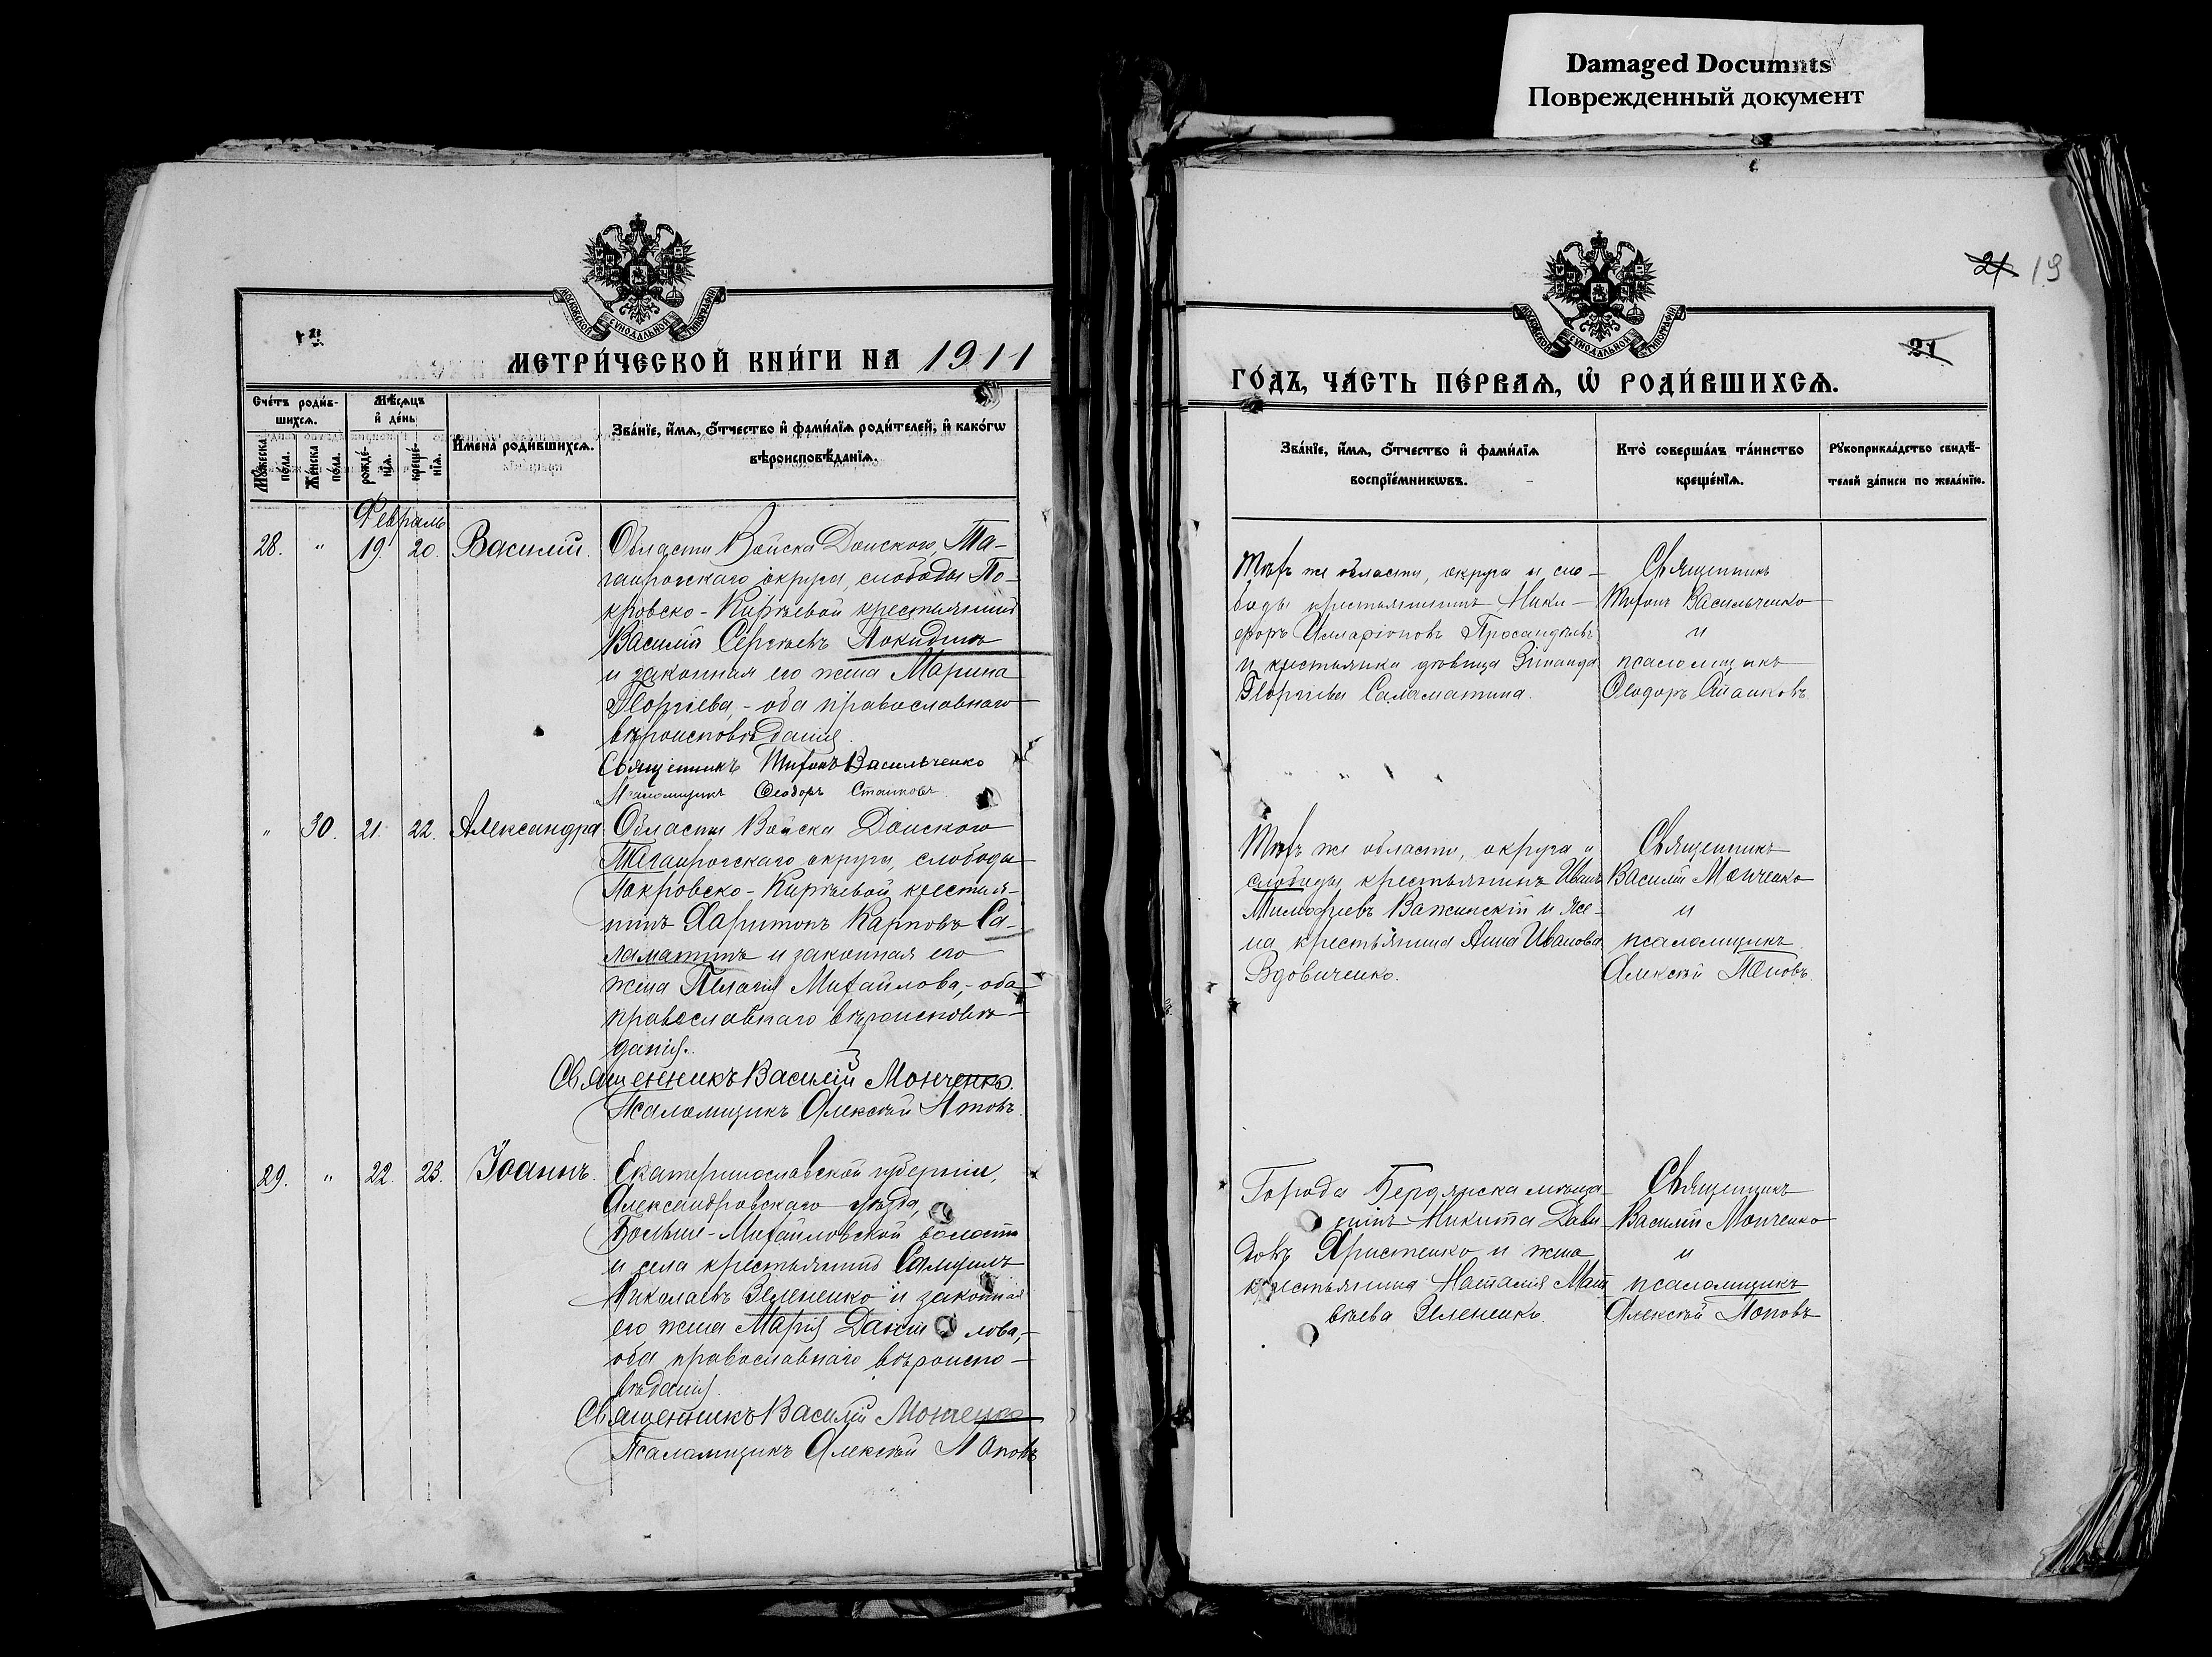 Damaged Documnts
Поврежденный документ
МОСКОВСКОЙ СѴНОДАЛЬНОЙ ТИПОГРАФІИ
МЕТРИ́ЧЕСКОЙ КНИ́ГИ НА 1911
Сче́тъ роди́в-
шихсѧ.
Мѣ́сѧцъ
и҆ де́нь
Мꙋ́жеска
по́ла.
Же́нска
по́ла.
рожде́-
нїѧ.
креще́-
нїѧ.
И҆мена̀ роди́вшихсѧ.
Зва́нїе, и҆́мѧ, ѻ҆́тчество и҆ фами́лїѧ роди́телей, и҆ како́гѡ
вѣроисповѣ́данїѧ.
Февраль
28. " 19. 20. Василій.
Области Войска Донского, Та-
ганрогскаго округа, слободы По-
кровско-Кирѣевой крестьянинъ
Василій Сергѣевъ Покидинъ
и законная его жена Марина
Георгіева, - оба православнаго
вѣроисповѣданія.
Священникъ Тихонъ Васильченко
Псаломщикъ Ѳеодоръ Станковъ
" 30. 21. 22. Александра
Области Войска Донского
Таганрогскаго округа, слободы
Покровско-Кирѣевой, крестья-
нинъ Харитонъ Карповъ Са-
ламатинъ и законная его
жена Пелагія Михайлова, - оба
православнаго вѣроисповѣ-
данія.
Священникъ Василій Монченко.
Псаломщикъ Алексѣй Поповъ.
29. " 22. 23. Іоаннъ.
Екатеринославской губерніи,
Александровскаго уѣзда,
Больше-Михайловской волости
и села крестьянинъ Самуилъ
Николаевъ Зелененко и законная
его жена Марія Даниилова, -
оба православнаго вѣроиспо-
вѣданія.
Священникъ Василій Монченко
Псаломщикъ Алексѣй Поповъ
21 19
МОСКОВСКОЙ СѴНОДАЛЬНОЙ ТИПОГРАФІИ
21
ГО́ДЪ, ЧА́СТЬ ПЕ́РВАѦ, Ѡ҆ РОДИ́ВШИХСѦ.
Зва́нїе, и҆́мѧ, ѻ҆́тчество и҆ фами́лїѧ
воспрїе́мникѡвъ.
Кто̀ соверша́лъ та́инство
креще́нїѧ.
Рꙋкоприкла́дство свидѣ́-
телей за́писи по жела́нїю.
Тѣхъ же области, округа и сло-
боды крестьянинъ Ники-
форъ Илларіоновъ
и крестьянка дѣвица Зинаида
Георгіева Саламатина.
Священникъ
Тихонъ Васильченко
и
псаломщикъ
Ѳеодоръ Станковъ
Тѣхъ же области, округа и
слободы крестьянинъ Иванъ
Тимофеевъ Важинскій и же-
на крестьянина Анна Иванова
Вдовиченко.
Священникъ
Василій Монченко
и
псаломщикъ
Алексѣй Поповъ.
Города Бердянска мѣща-
нинъ Никита Дави-
довъ Христенко и жена
крестьянина Наталія Мат
вѣева Зелененко.
Священникъ
Василій Монченко
и
псаломщикъ
Алексѣй Поповъ